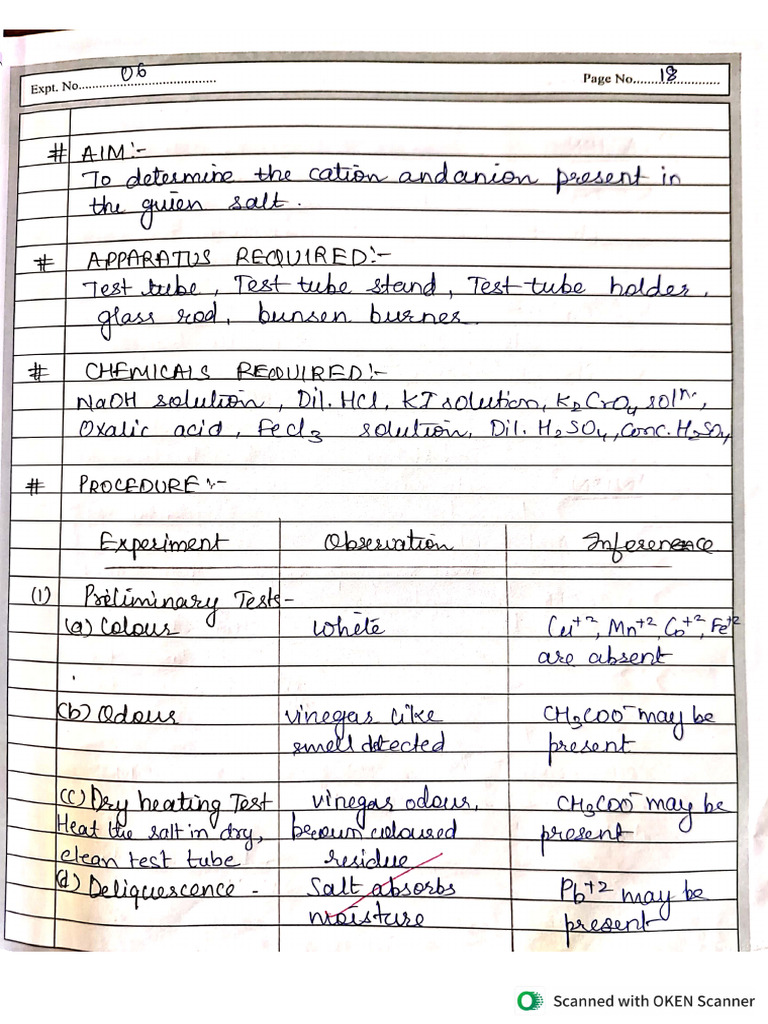 Expt. No. 06
Page No. 18
# AIM:-
To determine the cation and anion present in
the given salt.
# APPARATUS REQUIRED:-
Test tube, Test tube stand, Test tube holder,
glass rod, bunsen burner.
# CHEMICALS REQUIRED:-
NaOH solution, Dil. HCl, KI solution, K2CrO4 soln.,
Oxalic acid, FeCl3 solution, Dil. H2SO4, Conc. H2SO4
# PROCEDURE:-
Experiment Observation Inference
(1) Preliminary Tests-
(a) Colour White Cu+2, Mn+2, Co+2, Fe+2
are absent
(b) Odour vinegar like CH3COO- may be
smell detected present
(c) Dry heating Test vinegar odour, CH3COO- may be
Heat the salt in dry, brown coloured present
clean test tube residue
(d) Deliquescence - Salt absorbs Pb+2 may be
moisture present
Scanned with OKEN Scanner